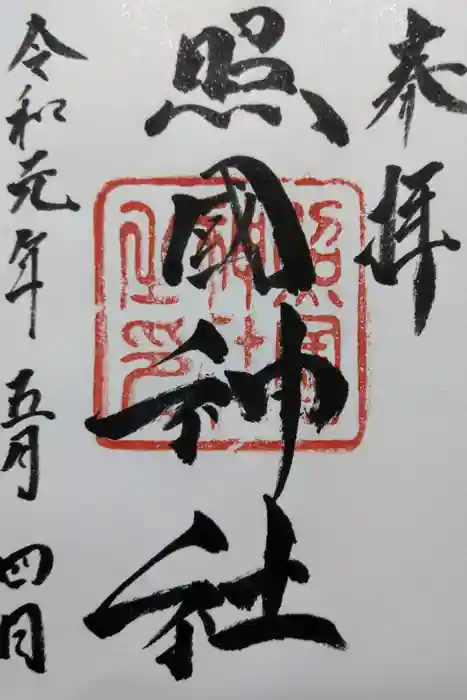 奉拝
照國神社
令和元年五月四日